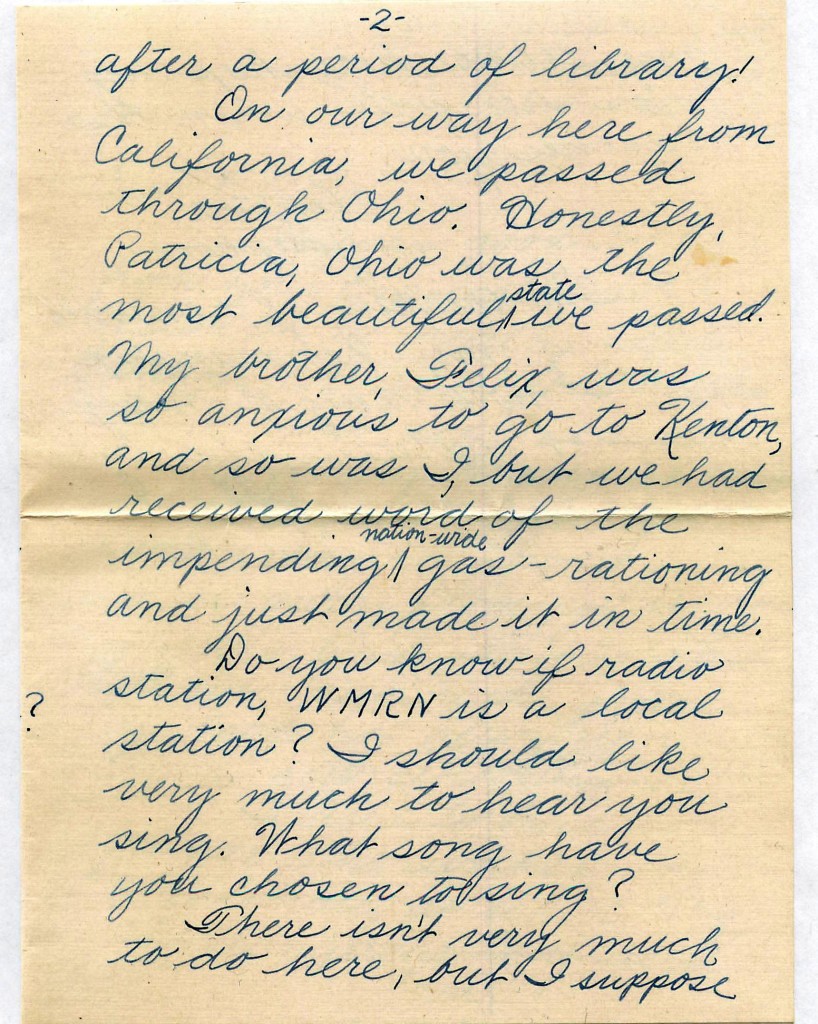 -2-
after a period of library!
On our way here from
California, we passed
through Ohio. Honestly,
Patricia, Ohio was the
state
most beautiful ^ we passed.
My brother, Felix, was
so anxious to go to Kenton,
and so was I, but we had
received word of the
nation-wide
impending ^ gas-rationing
and just made it in time.
Do you know if radio
station, WMRN is a local
?
station? I should like
very much to hear you
sing. What song have
you chosen to sing?
There isn't very much
to do here, but I suppose